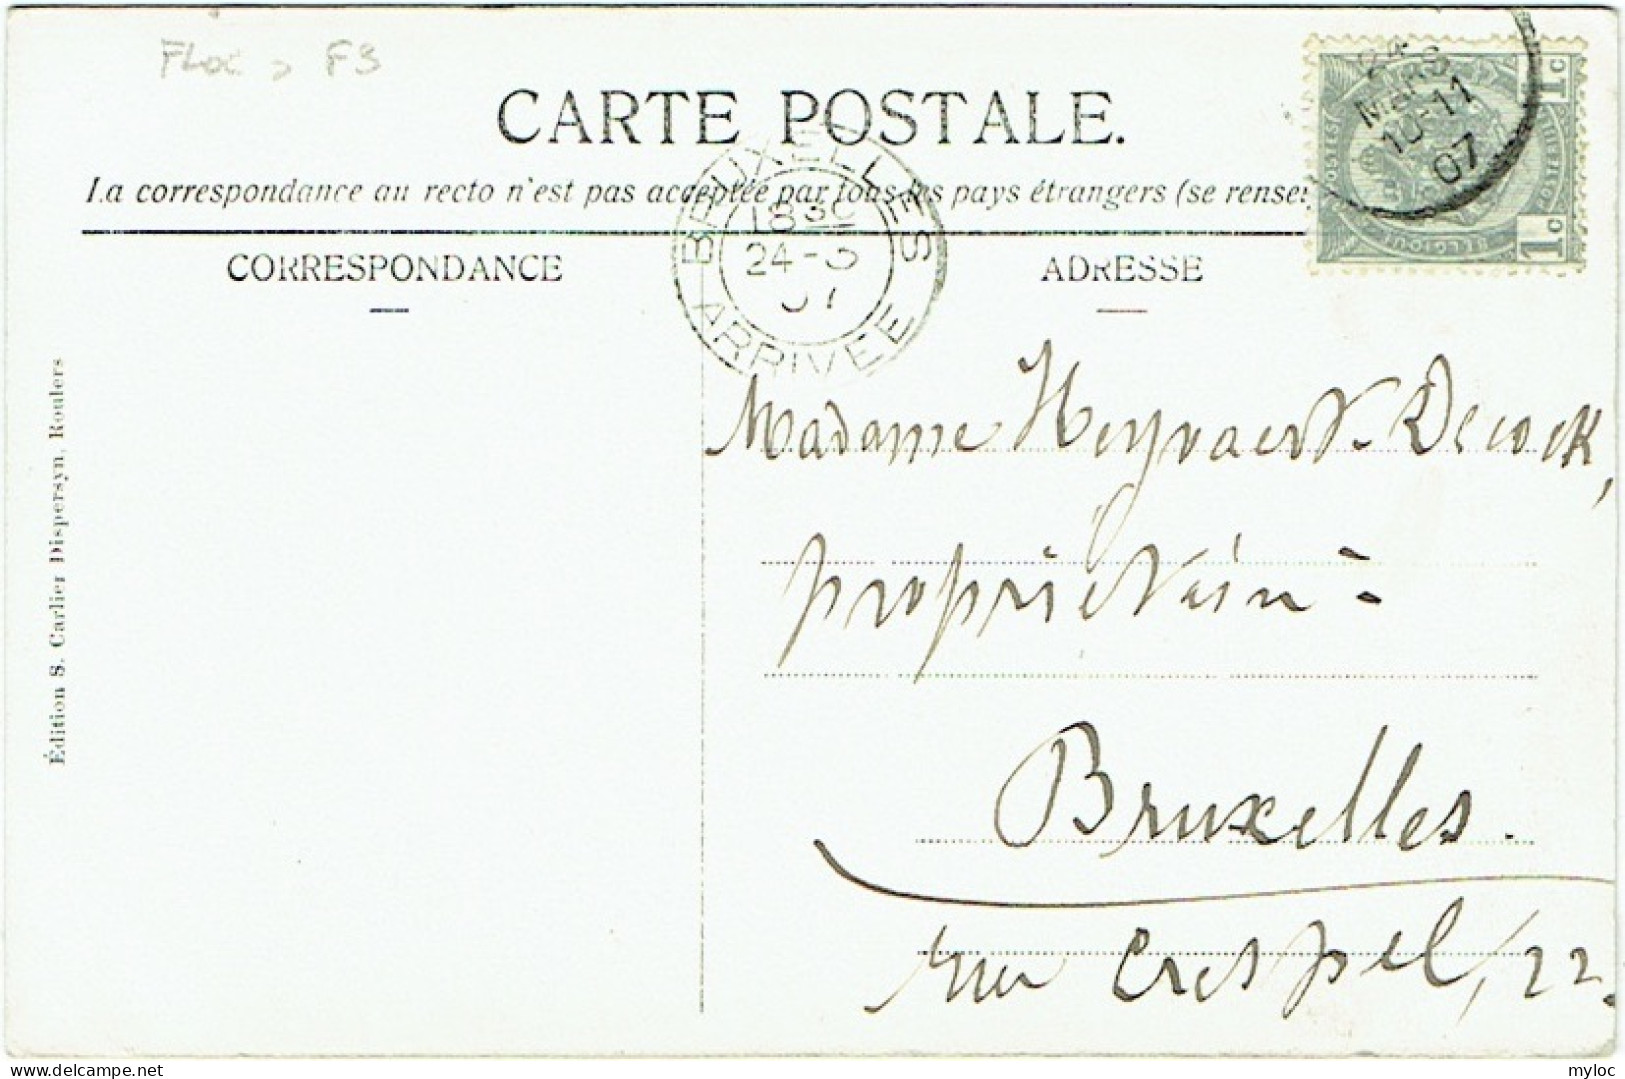 Floc > F3
CARTE POSTALE.
La correspondance au recto n'est pas acceptée par tous les pays étrangers (se rensei
CORRESPONDANCE
ADRESSE
BRUXELLES
18 30
24-3
07
ARRIVEE
24
MARS
10-11
07
1c
1c
POSTES
BELGIQUE
Madame Heyvaert-Decock,
propriétaire à
Bruxelles.
rue Crespel, 22.
Édition S. Carlier Dispersyn, Roulers
myloc